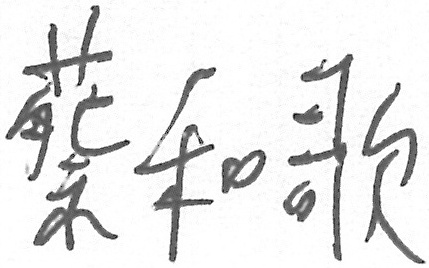 蔡和歌